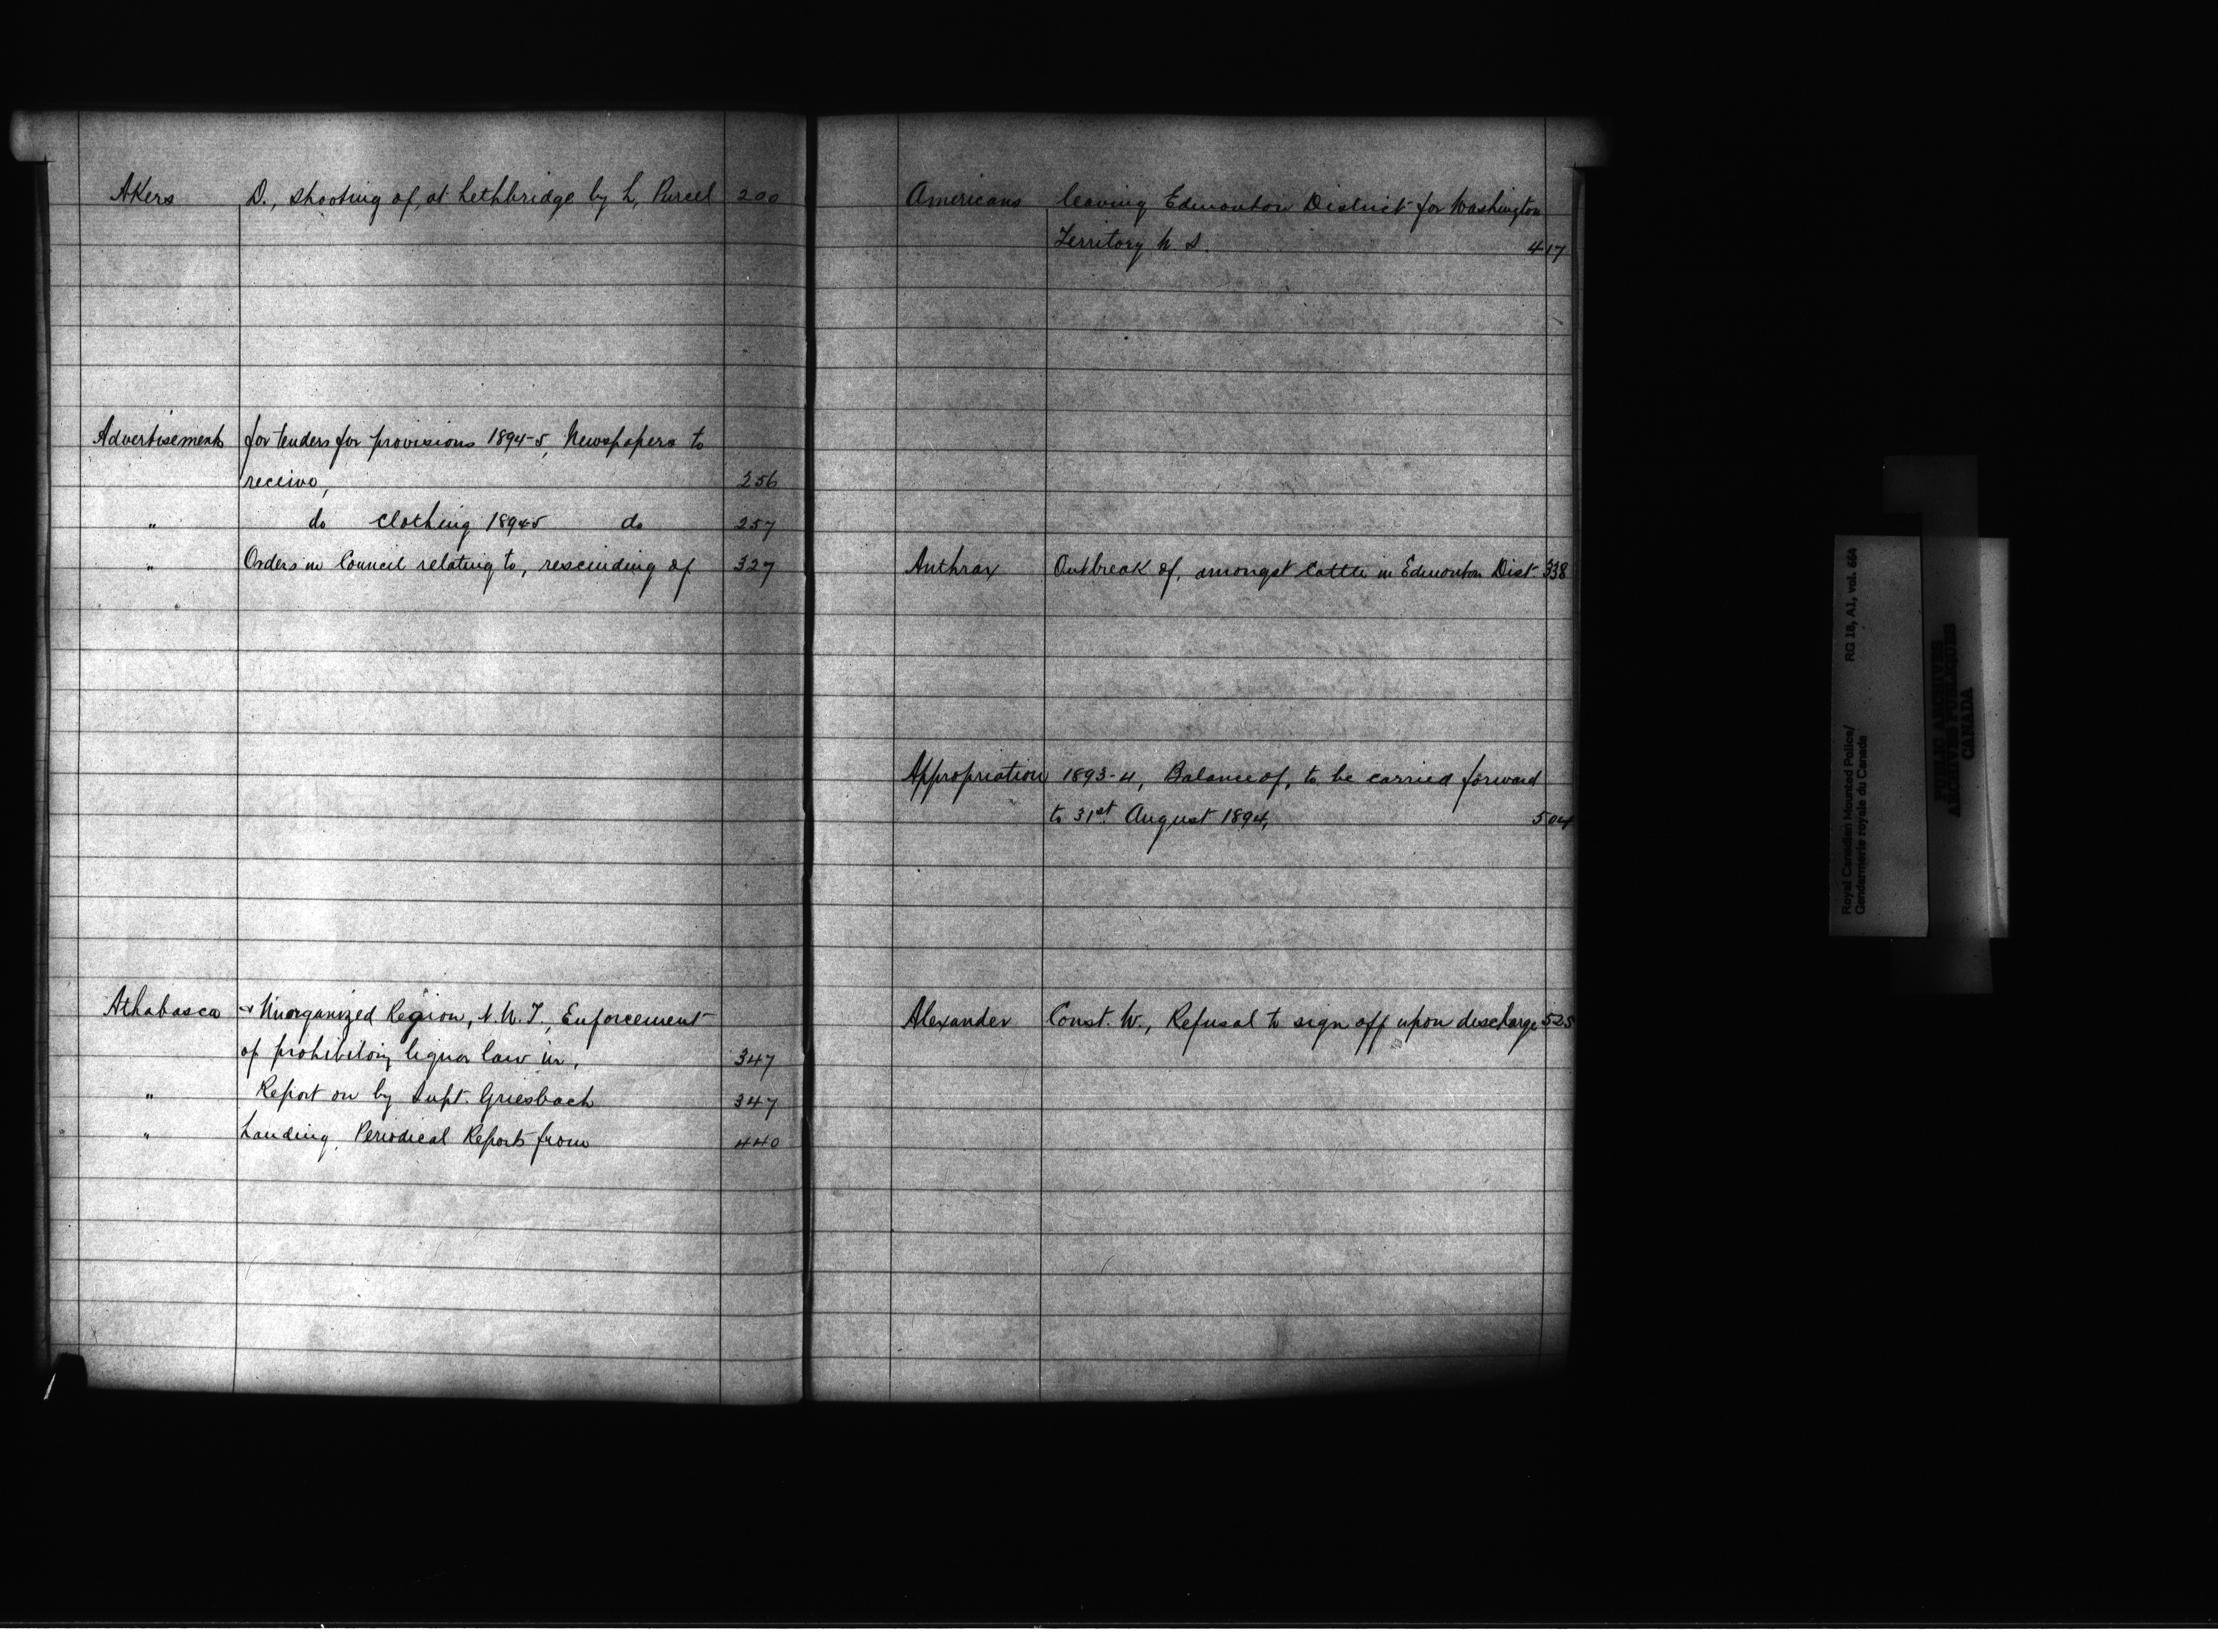 Akers D., shooting of, at Lethbridge by L. Purcel 200
Advertisements for tenders for provisions 1894-5, Newspapers to
receive, 256
" do clothing 1894-5 do 257
" Orders in Council relating to, rescinding of 327
Athabasca & Unorganized Region, N.W.T., Enforcement
of prohibitory liquor law in, 347
" Report on by Supt. Griesbach 347
" Landing, Periodical Reports from 440
Americans leaving Edmonton District for Washington
Territory U.S. 417
Anthrax Outbreak of, amongst cattle in Edmonton Dist. 338
Appropriation 1893-4, Balance of, to be carried forward
to 31st August 1894, 504
Alexander Const. W., Refusal to sign off upon discharge 525
Royal Canadian Mounted Police/ RG 18, A1, vol. 654
Gendarmerie royale du Canada
PUBLIC ARCHIVES
ARCHIVES PUBLIQUES
CANADA